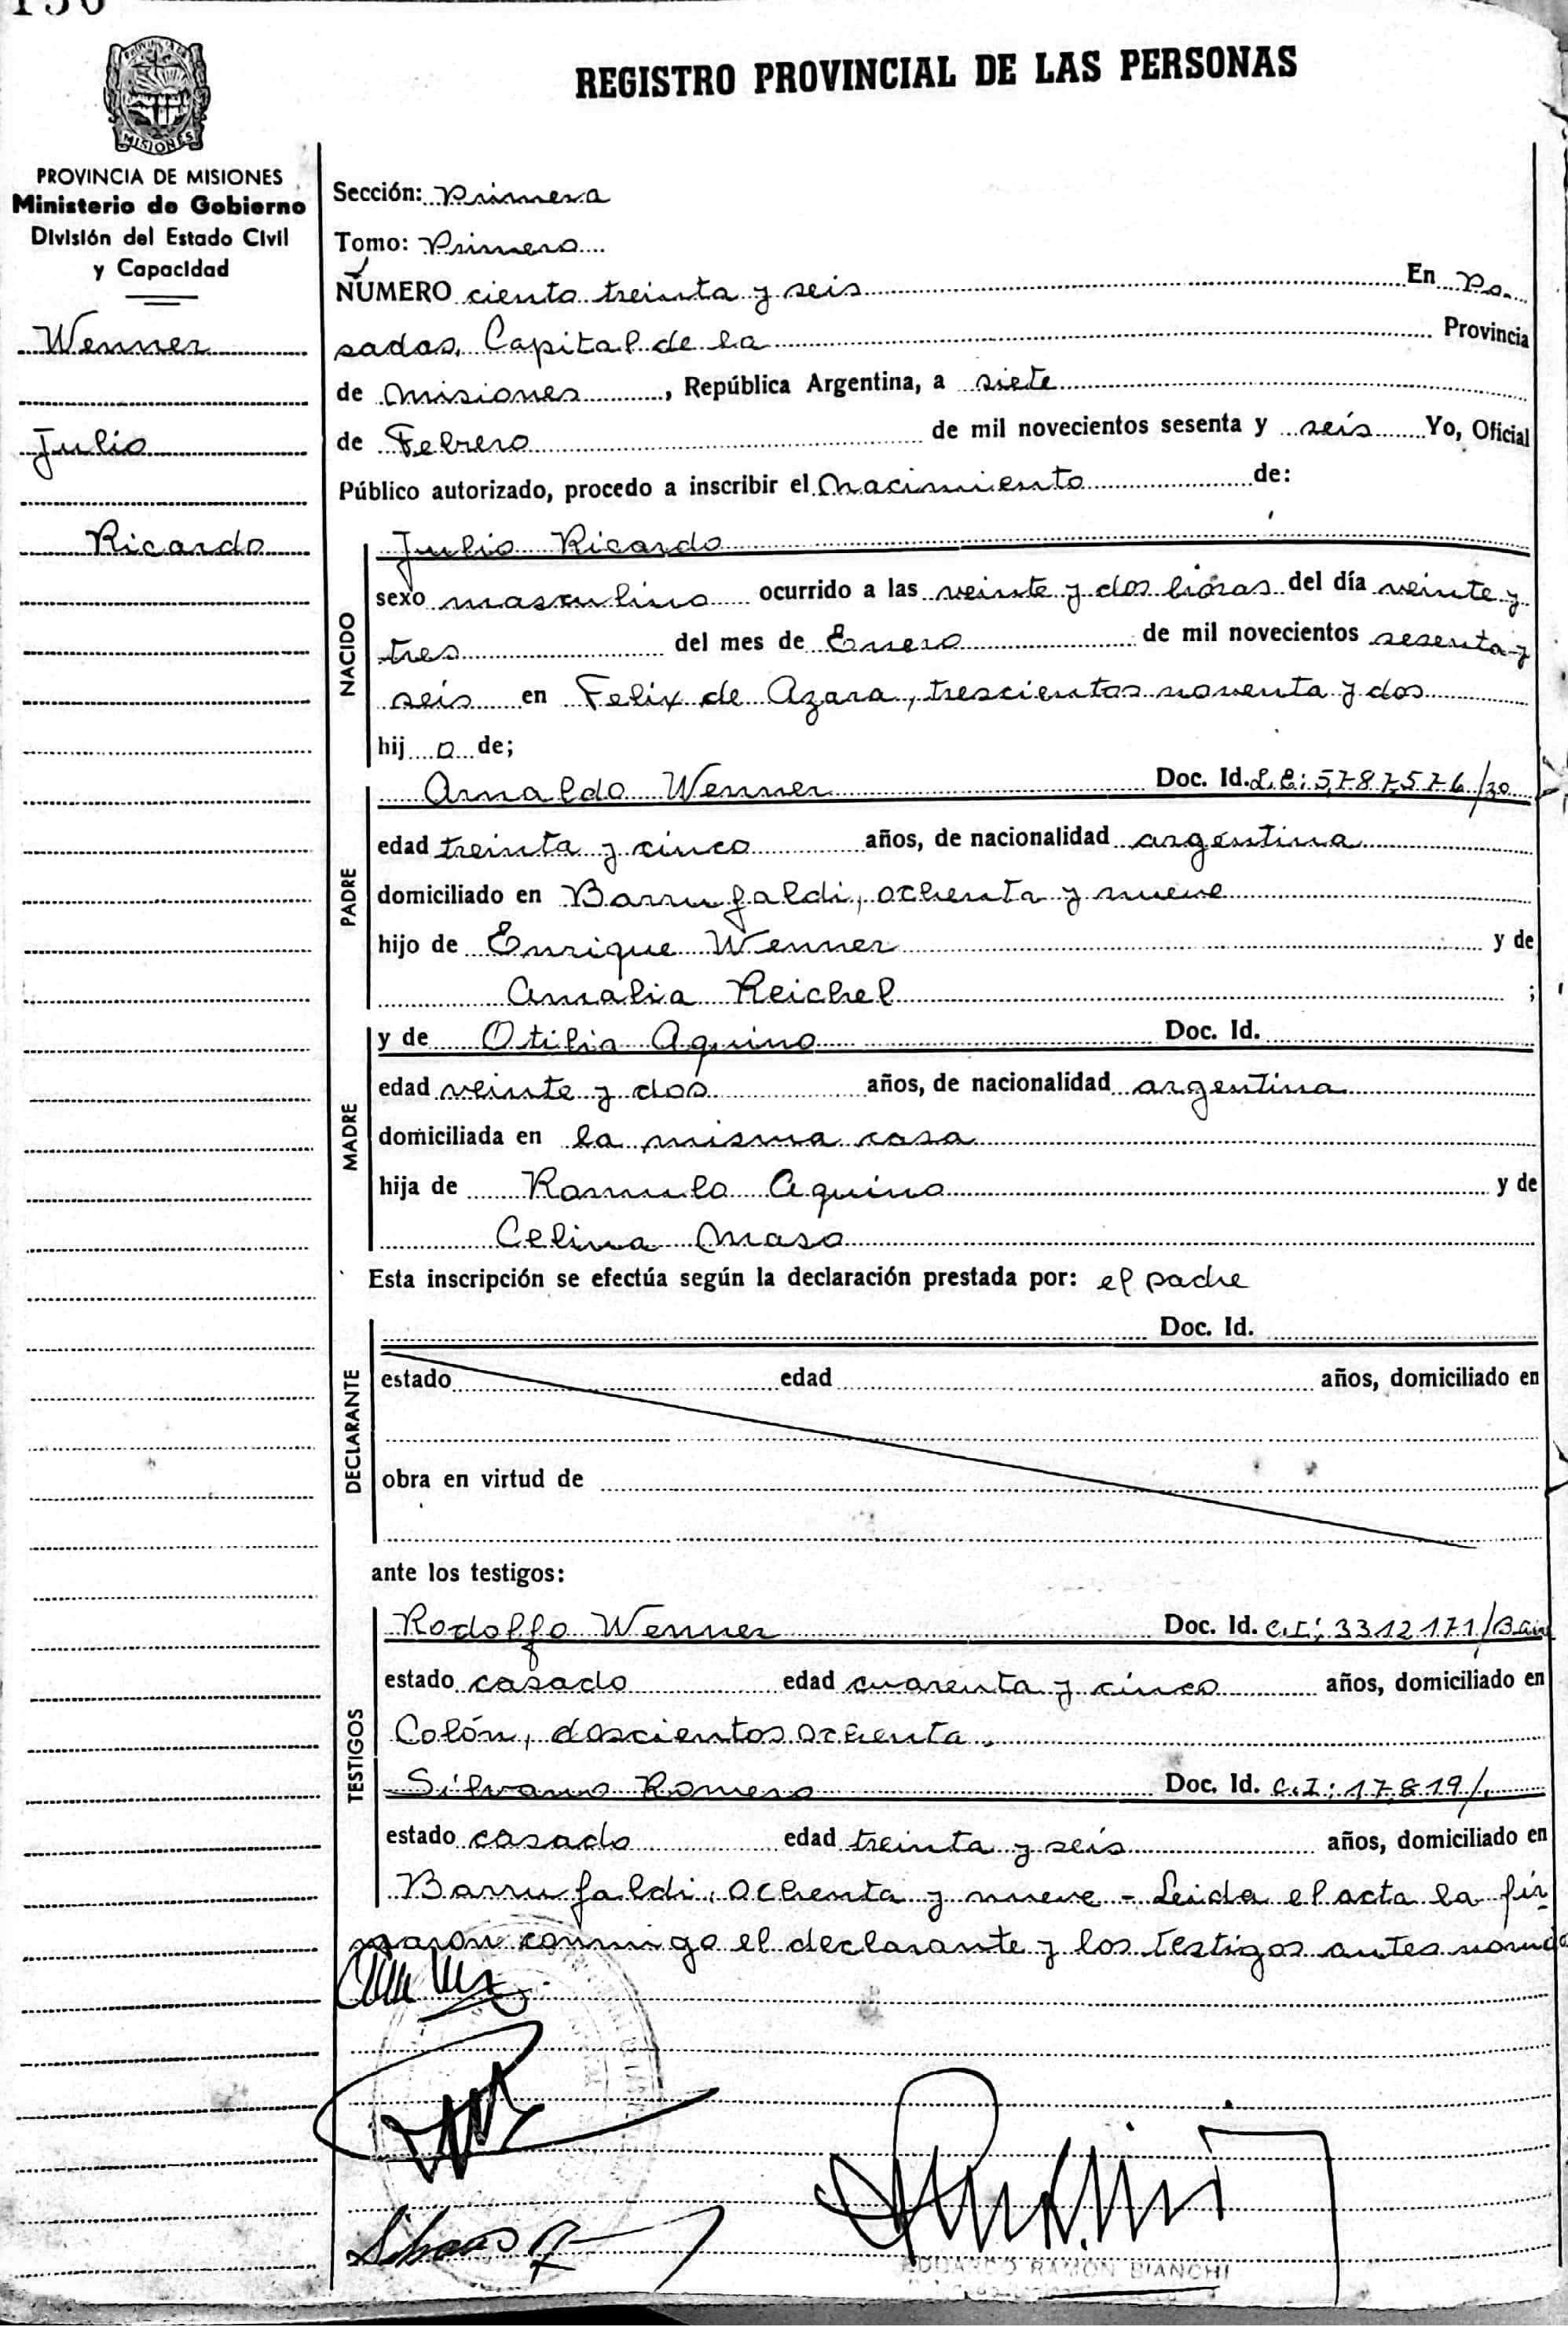 136
REGISTRO PROVINCIAL DE LAS PERSONAS
MISIONES
PROVINCIA DE MISIONES
Ministerio de Gobierno
División del Estado Civil
y Capacidad
Wenner
Julio
Ricardo
Sección: Primera
Tomo: Primero
NÚMERO ciento treinta y seis En Po-
sadas, Capital de la Provincia
de Misiones, República Argentina, a siete
de Febrero de mil novecientos sesenta y seis Yo, Oficial
Público autorizado, procedo a inscribir el nacimiento de:
NACIDO
Julio Ricardo
sexo masculino ocurrido a las veinte y dos horas del día veinte y
tres del mes de Enero de mil novecientos sesenta y
seis en Felix de Azara, trescientos noventa y dos
hij o de;
PADRE
Arnaldo Wenner Doc. Id. L.E: 5,787,576/30
edad treinta y cinco años, de nacionalidad argentina
domiciliado en Barrufaldi, ochenta y nueve
hijo de Enrique Wenner y de
Amalia Reichel ;
MADRE
y de Otilia Aquino Doc. Id.
edad veinte y dos años, de nacionalidad argentina
domiciliada en la misma casa
hija de Romulo Aquino y de
Celina Maso
Esta inscripción se efectúa según la declaración prestada por: el padre
DECLARANTE
Doc. Id.
estado edad años, domiciliado en
obra en virtud de
ante los testigos:
TESTIGOS
Rodolfo Wenner Doc. Id. C.I: 3312171/
estado casado edad cuarenta y cinco años, domiciliado en
Colón, doscientos ochenta,
Silvano Romero Doc. Id. C.I: 17,819/.
estado casado edad treinta y seis años, domiciliado en
Barrufaldi, ochenta y nueve - Leida el acta la fir-
maron conmigo el declarante y los testigos antes
EDUARDO RAMON BIANCHI